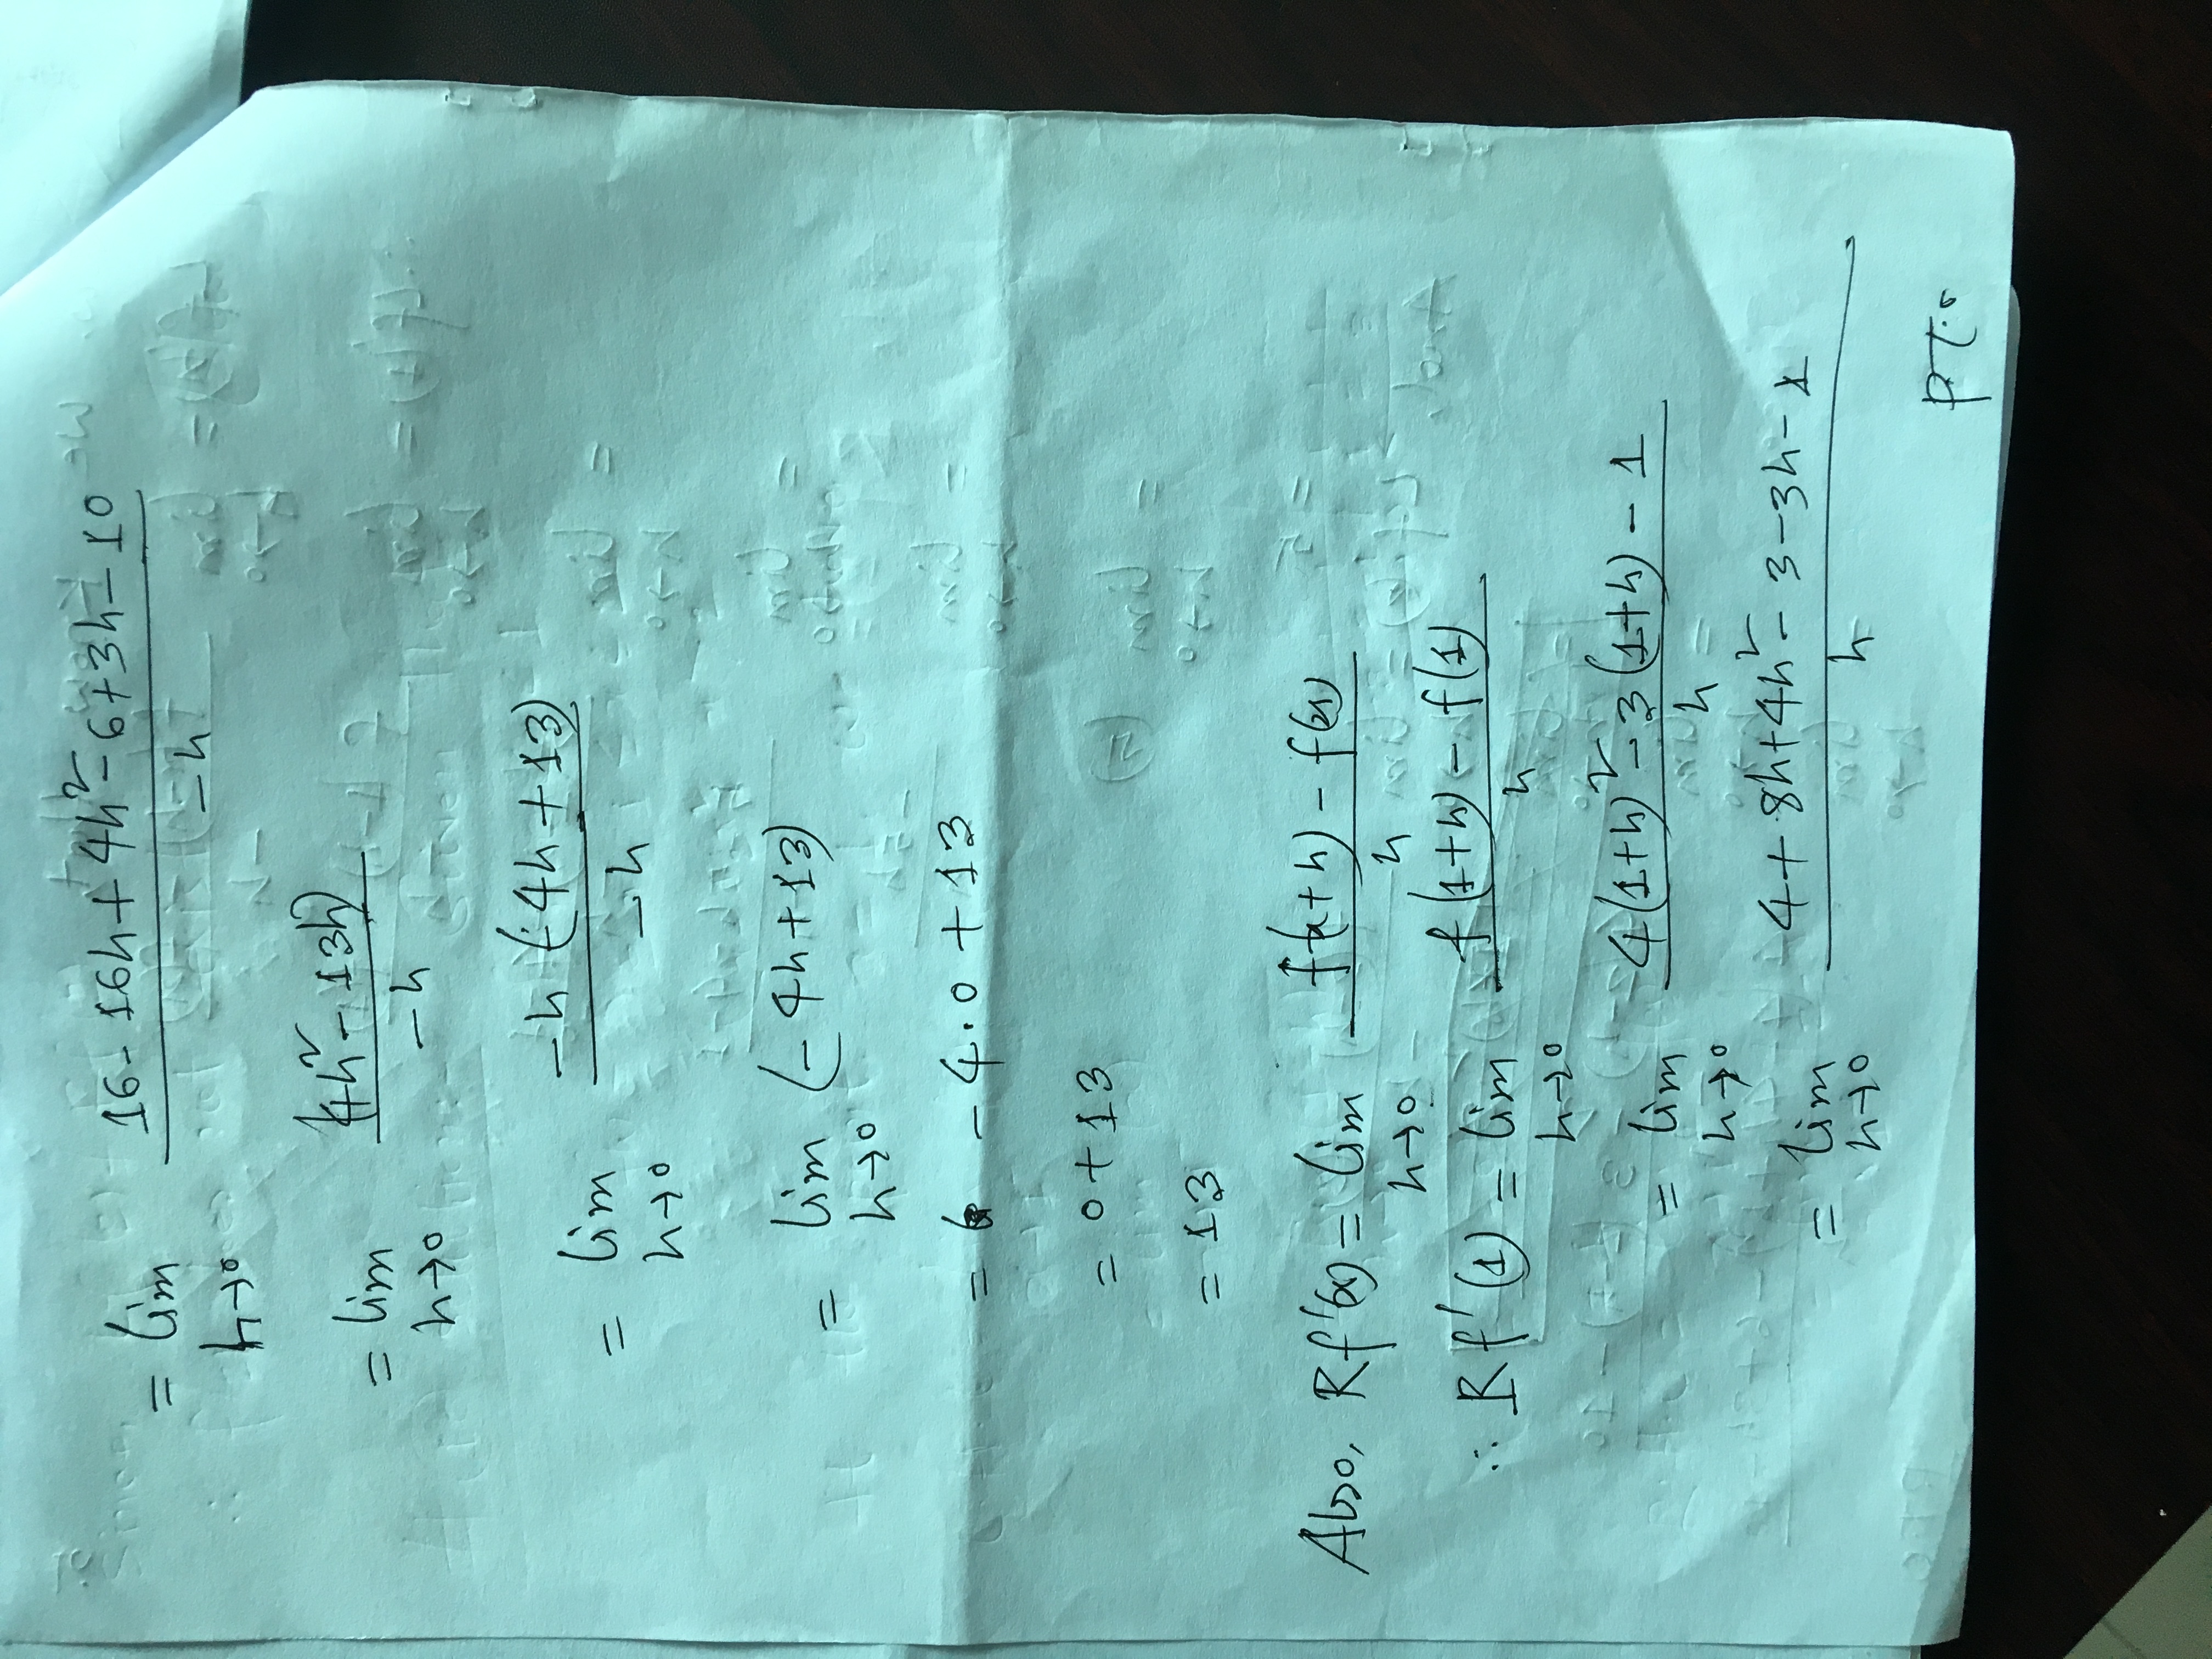 = lim h→0 (16 - 16h + 4h² - 6 + 3h - 10) / (-h)
= lim h→0 (4h² - 13h) / (-h)
= lim h→0 -h (-4h + 13) / (-h)
= lim h→0 (-4h + 13)
= - 4·0 + 13
= 0 + 13
= 13
Also, Rf'(x) = lim h→0 (f(x+h) - f(x)) / h
∴ Rf'(1) = lim h→0 (f(1+h) - f(1)) / h
= lim h→0 (4(1+h)² - 3(1+h) - 1) / h
= lim h→0 (4 + 8h + 4h² - 3 - 3h - 1) / h
P.T.O